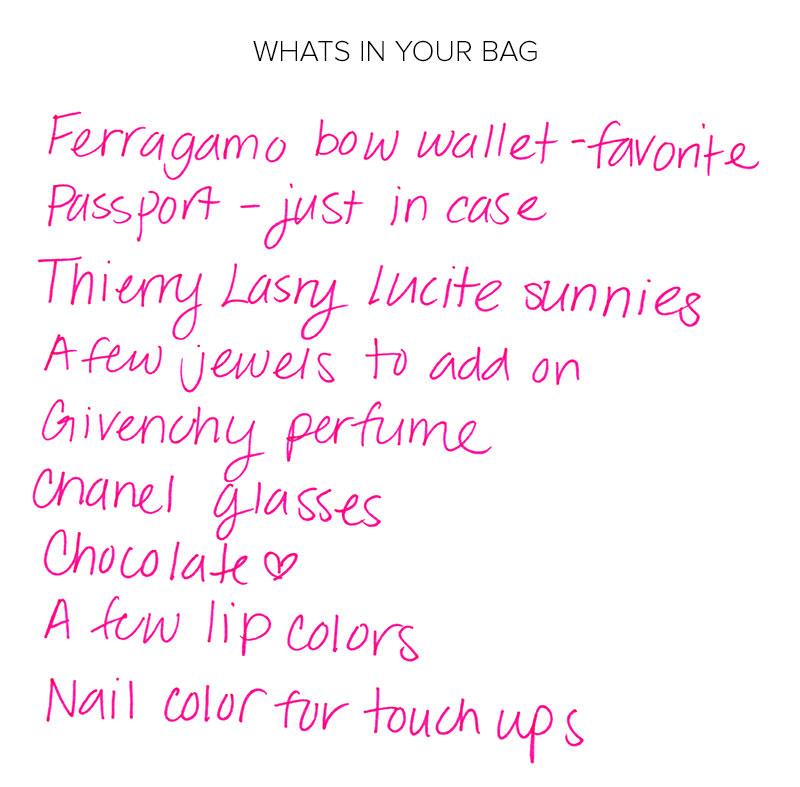 WHATS IN YOUR BAG
Ferragamo bow wallet - favorite
Passport - just in case
Thierry Lasry lucite sunnies
A few jewels to add on
Givenchy perfume
Chanel glasses
Chocolate ♡
A few lip colors
Nail color for touch ups